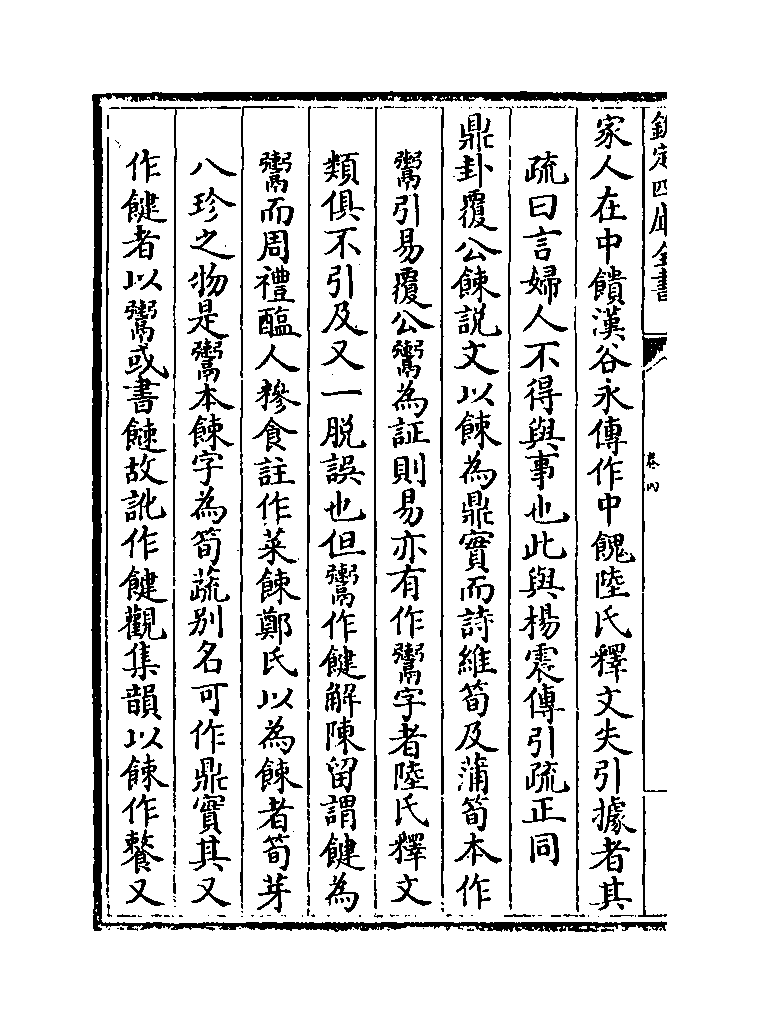 欽定四庫全書 卷
家人在中饋漢谷永傳作中餽陸氏釋文失引據者其
疏曰言婦人不得與事也此與楊震傳引疏正同
鼎卦覆公餗説文以餗為鼎實而詩維筍及蒲筍本作
鬻引易覆公鬻為証則易亦有作鬻字者陸氏釋文
類俱不引及又一脱誤也但鬻作䭈解陳留謂䭈為
鬻而周禮醢人糝食註作菜餗鄭氏以為餗者筍芽
八珍之物是鬻本餗字為筍蔬别名可作鼎實其又
作䭈者以鬻或書故訛作䭈觀集韻以餗作又